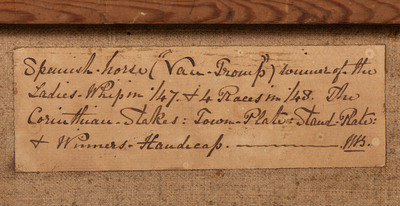 Spanish-horse (Van-Tromp) winner of the
Ladies-Whip in /47. & 4 Races in /48. The
Corinthian-Stakes: Town-Plate: Stand-Plate:
& Winners-Handicap.